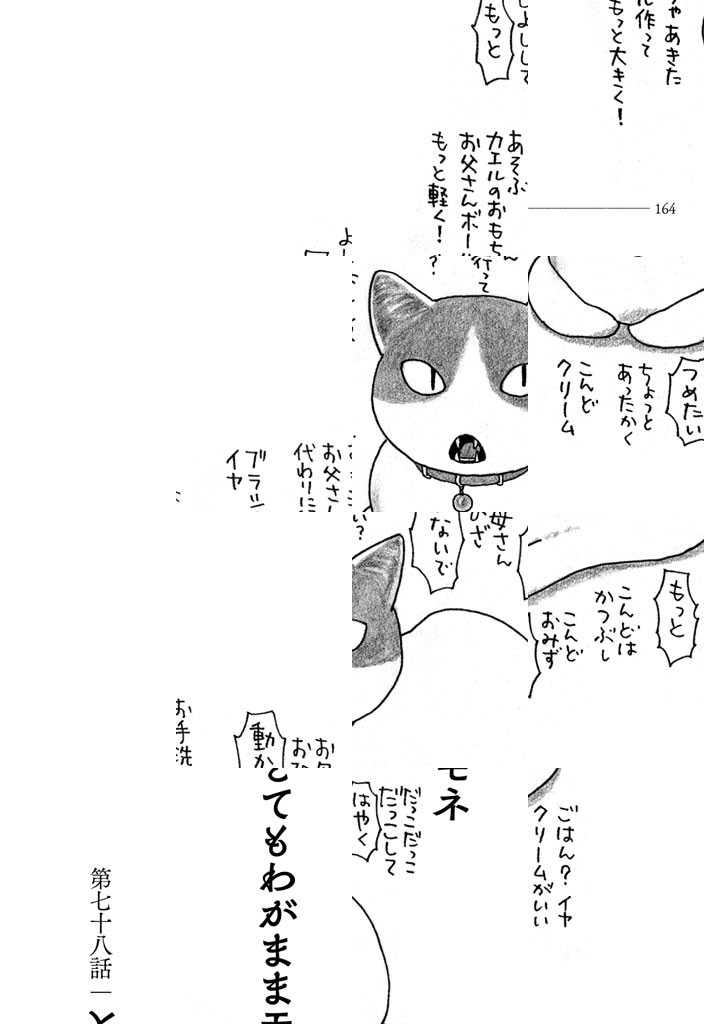 ゃあきた
ル作って
もっと大きく!
もっと
あそぶ
カエルのおもちゃ
お父さんボール
もっと軽く!
164
行って
つめたい
ちょっと
あったかく
こんど
クリーム
お父さん
代わりに
ブラシ
イヤ
母さん
ひざ
ないで
もっと
こんどは
かつぶし
こんど
おみず
お手洗
動か
モネ
だっこだっこ
だっこして
はやく
ごはん?イヤ
クリームがいい
とてもわがままモ
第七十八話|と